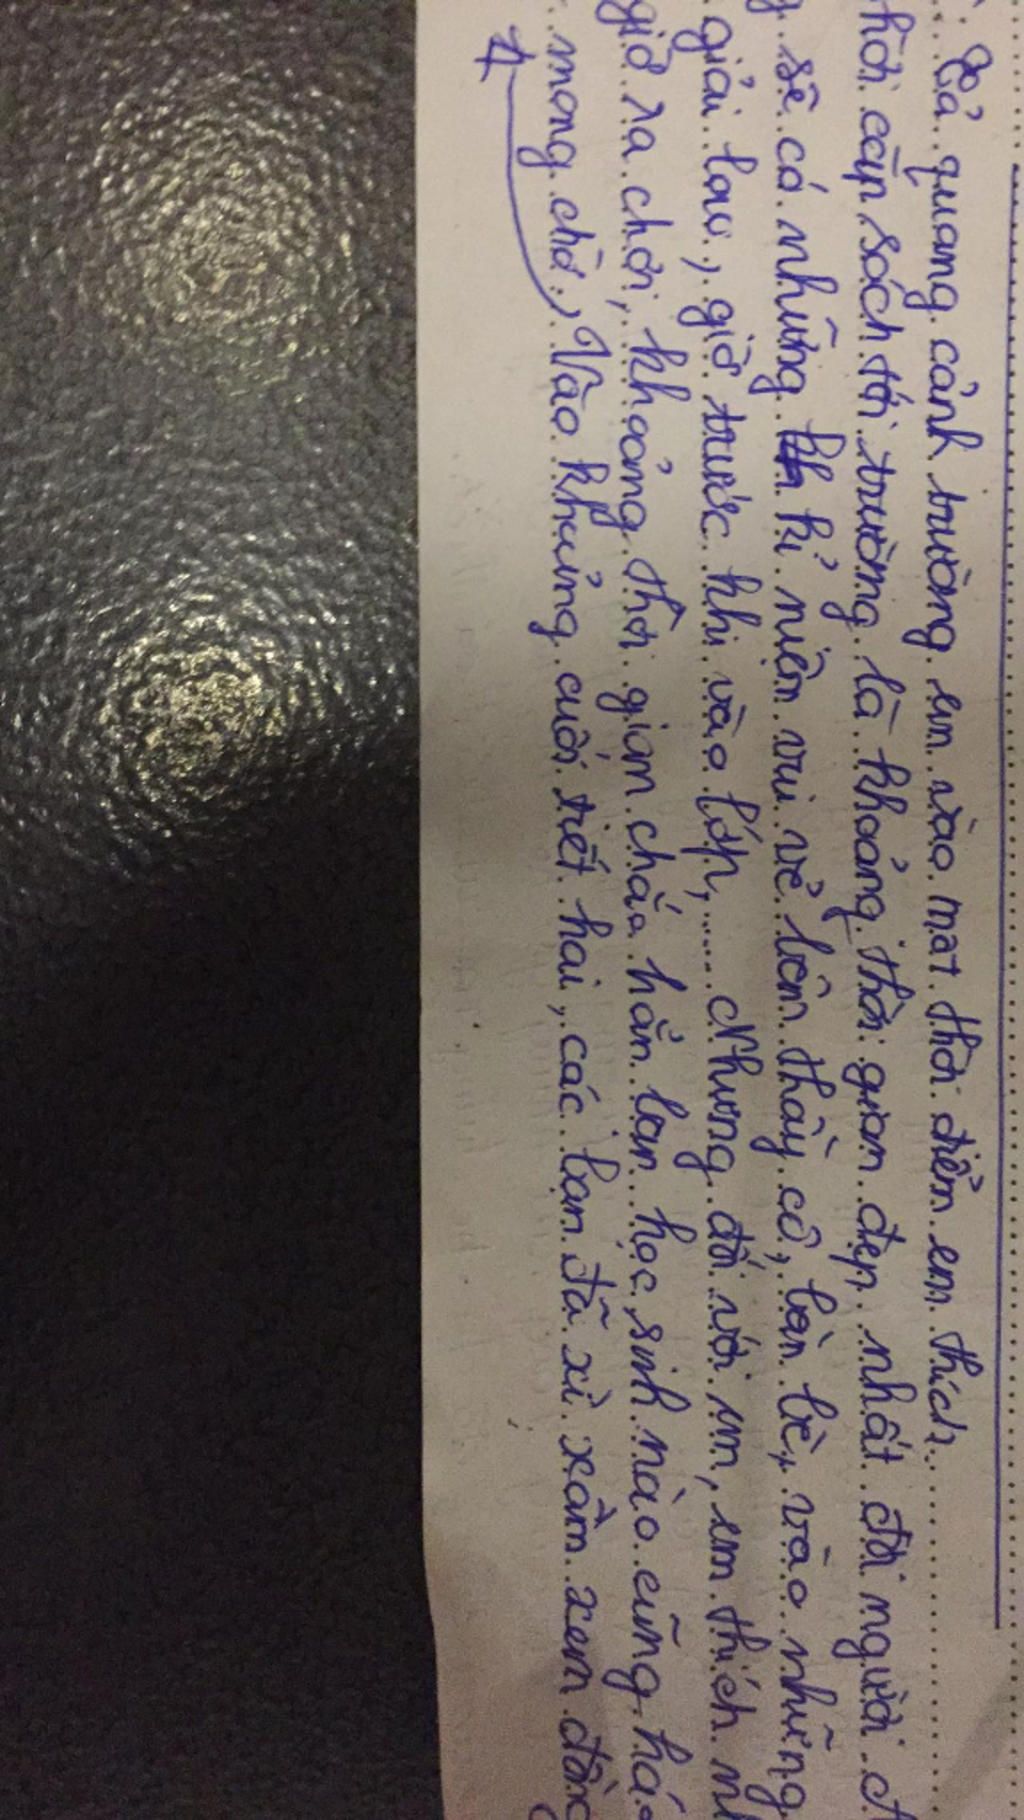 Tả quang cảnh trường em vào một thời điểm em thích
hời cắp sách tới trường là khoảng thời gian đẹp nhất đời người. Ở
g sẽ có những kỉ niệm vui vẻ bên thầy cô, bạn bè, vào những
giải lao, giờ trước khi vào lớp,.... Nhưng đối với em, em thích nh
giờ ra chơi, khoảng thời gian chắc hẳn bạn học sinh nào cũng há
mong chờ. Vào khoảng cuối tiết hai, các bạn đã xì xầm xem đồng